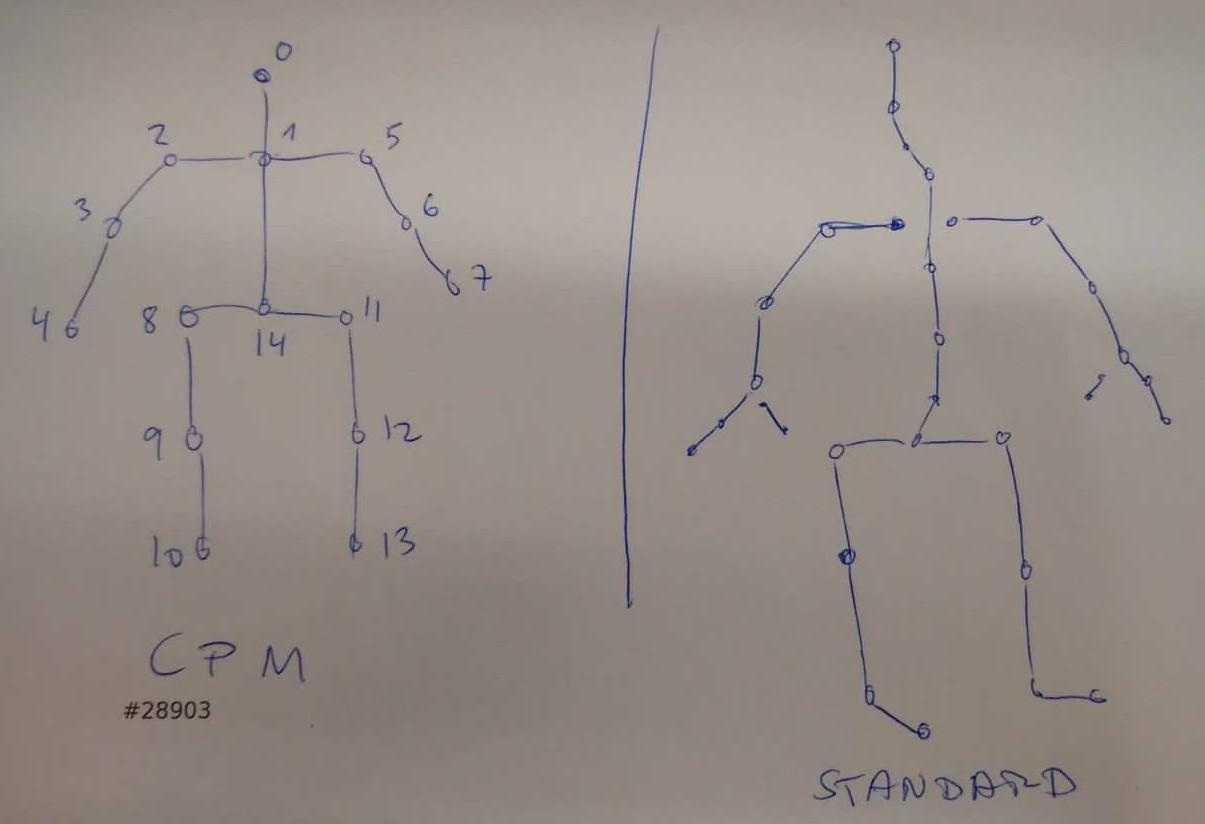 0
2 1 5
3 6
4 8 14 11 7
9 12
10 13
CPM
#28903
STANDARD